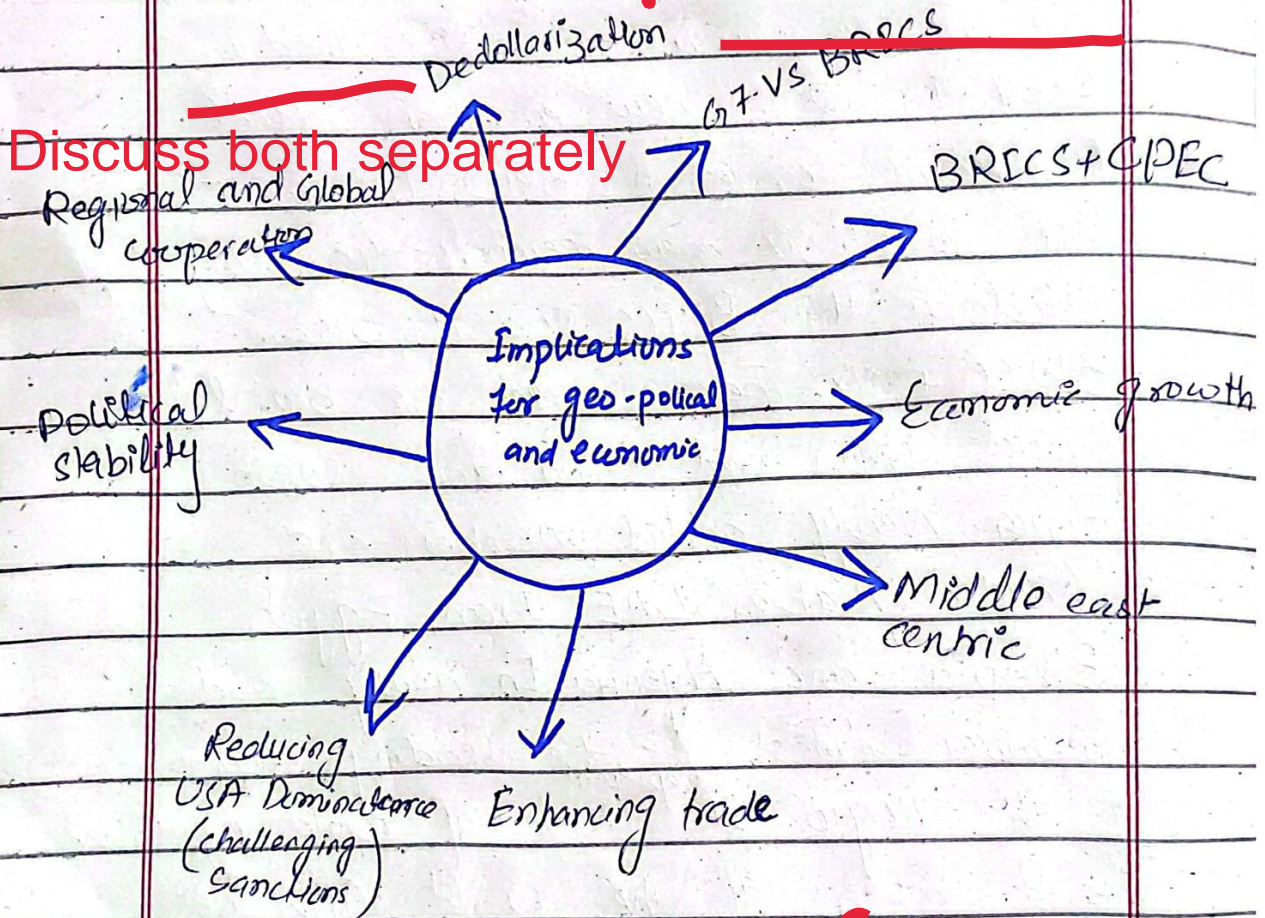 Dedollarization
G7 VS BRICS
Discuss both separately
BRICS+ CPEC
Regional and Global
cooperation
Implications
for geo-polical
and economic
Political
stability
Economic growth
Middle east
centric
Reducing
USA Dominatance
(challenging
sanctions)
Enhancing trade